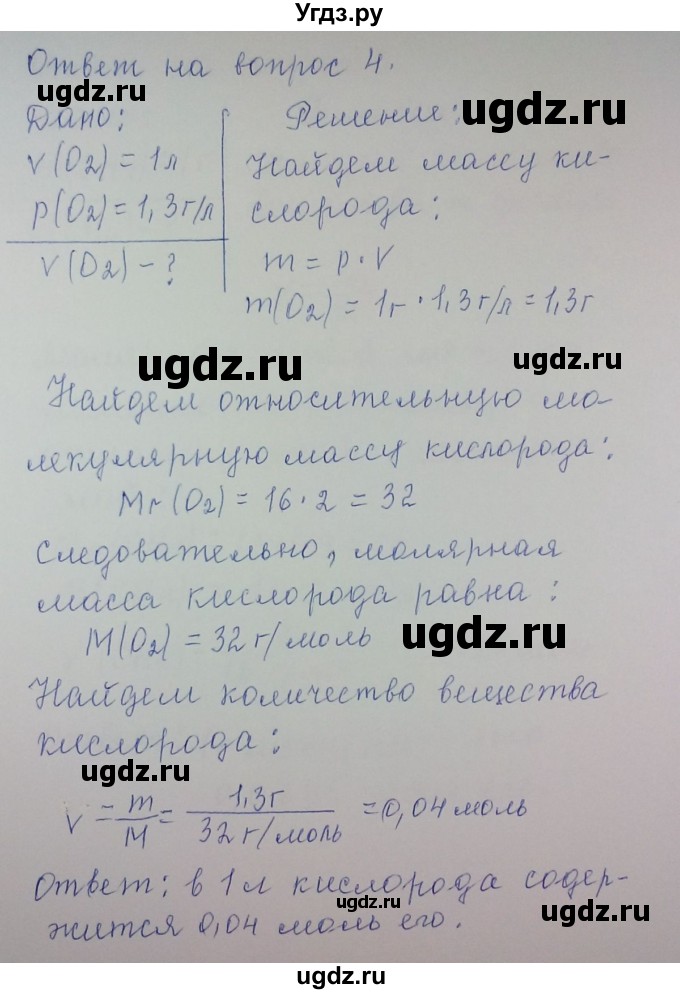 Угдз.ру
Ответ на вопрос 4.
ugdz.ru
Дано:
Решение:
ugdz.ru
V(O₂) = 1л
Найдем массу ки-
ρ(O₂) = 1,3г/л
слорода:
ν(O₂) - ?
m = ρ · V
m(O₂) = 1г · 1,3г/л = 1,3г
ugdz.ru
ugdz.ru
Найдем относительную мо-
лекулярную массу кислорода:
Mr(O₂) = 16 · 2 = 32
Следовательно, молярная
масса кислорода равна:
M(O₂) = 32 г/моль
ugdz.ru
Найдем количество вещества
кислорода:
ugdz.ru
ν = m/M = 1,3г / 32 г/моль = 0,04 моль
Ответ: в 1л кислорода содер-
ugdz.ru
ugdz.ru
жится 0,04 моль его.
ugdz.ru